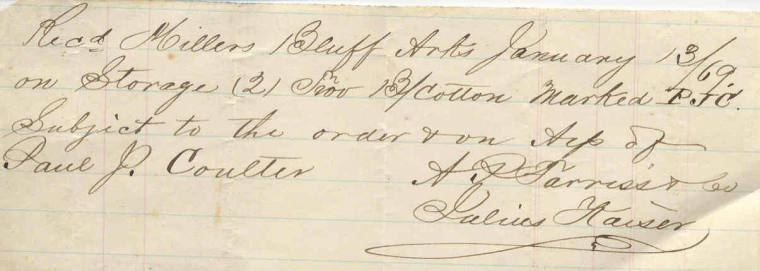 Recd Millers Bluff Arks January 13/69.
on Storage (2) Two B/Cotton Marked P.J.C.
Subject to the order & on A/c of
Paul J. Coulter A P Farriss & Co
Julius Kaiser